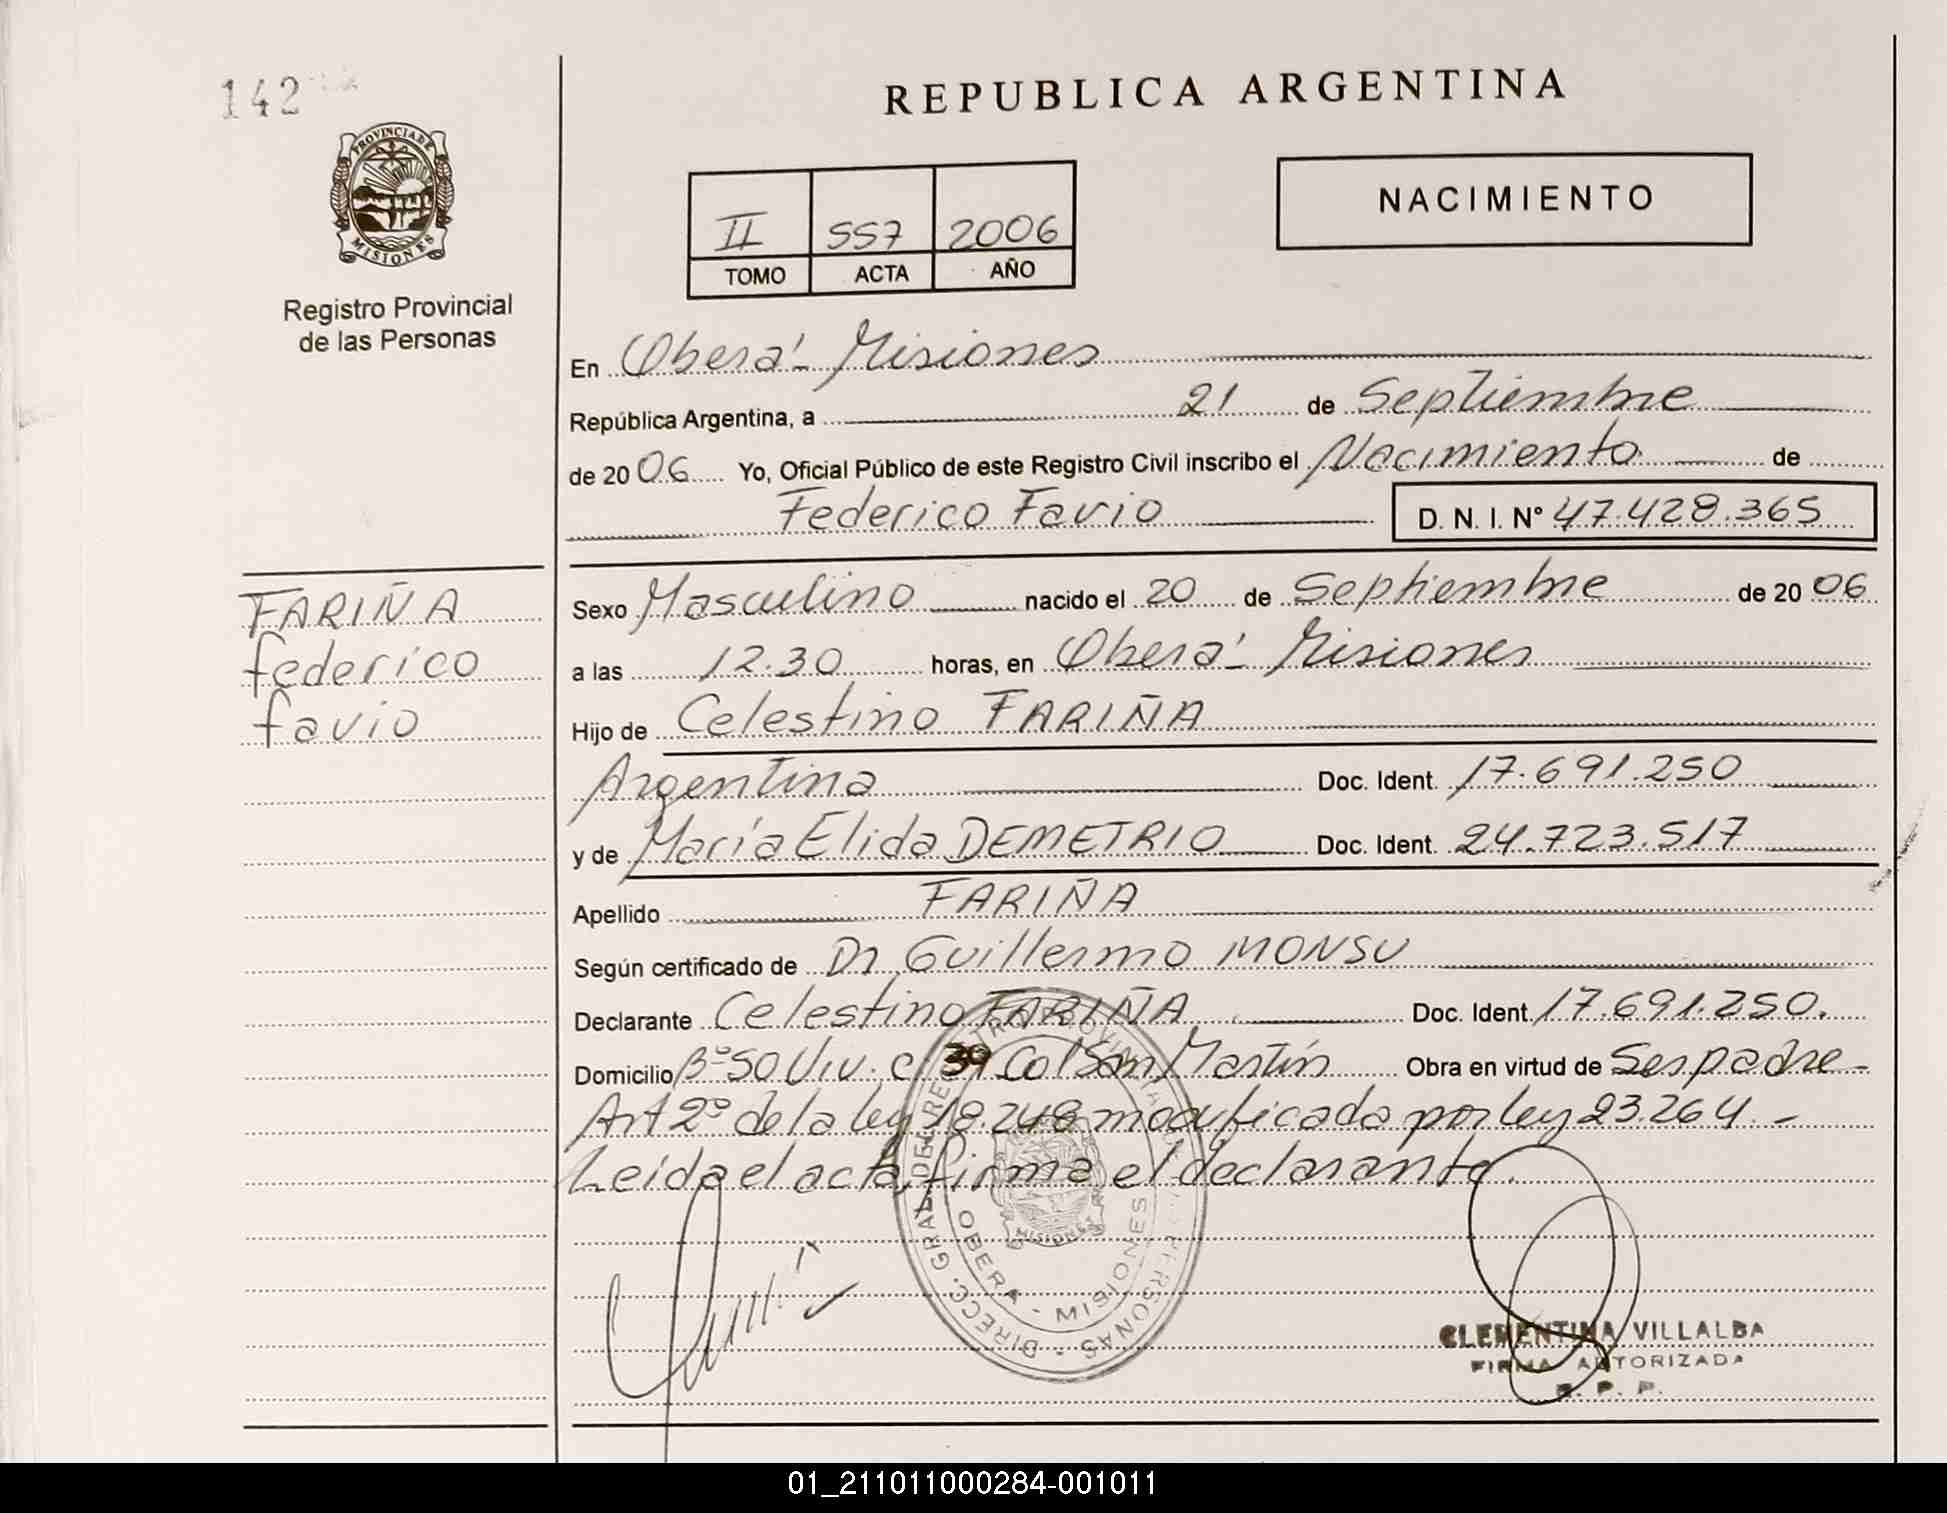 142
REPUBLICA ARGENTINA
PROVINCIA DE
MISIONES
II 557 2006
TOMO ACTA AÑO
NACIMIENTO
Registro Provincial
de las Personas
En Oberá - Misiones
República Argentina, a 21 de Septiembre
de 2006 Yo, Oficial Público de este Registro Civil inscribo el Nacimiento de
Federico Favio D. N. I. N° 47.428.365
FARIÑA
federico
favio
Sexo Masculino nacido el 20 de Septiembre de 2006
a las 12.30 horas, en Oberá - Misiones
Hijo de Celestino FARIÑA
Argentina Doc. Ident. 17.691.250
y de María Elida DEMETRIO Doc. Ident. 24.723.517
Apellido FARIÑA
Según certificado de Dr Guillermo MONSU
Declarante Celestino FARIÑA Doc. Ident. 17.691.250.
Domicilio Bº 50 Viv. c/ 39 Col San Martín Obra en virtud de Ser padre -
Art 2º de la ley 18.248 modificada por ley 23.264. -
Leída el acta, firma el declarante.
OBERA - MISIONES
MISIONES
CLEMENTINA VILLALBA
FIRMA AUTORIZADA
R. P. P.
01_211011000284-001011